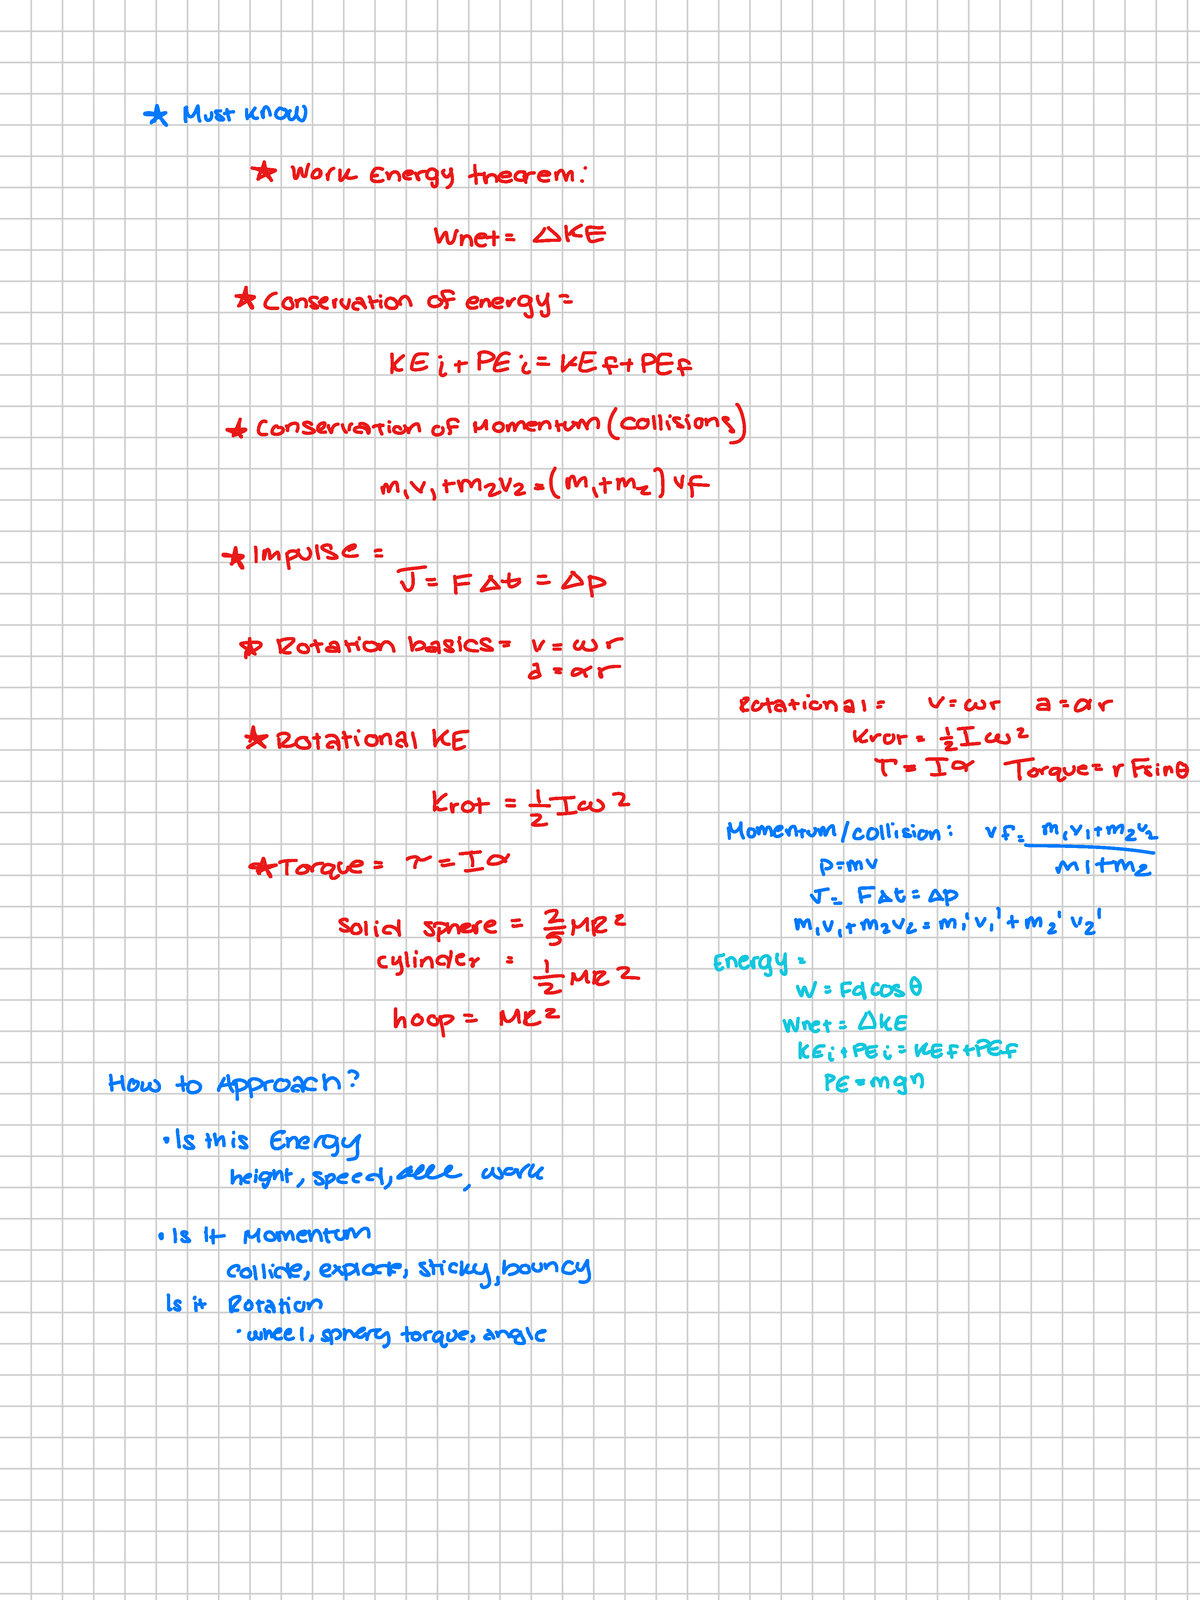 ★ Must know
★ Work Energy theorem:
Wnet = ΔKE
★ Conservation of energy =
KE i + PE i = KE f + PE f
★ Conservation of Momentum (collisions)
m₁v₁ + m₂v₂ = (m₁+m₂) vf
★ Impulse =
J = F Δt = Δp
★ Rotation basics = v = ωr
a = αr
★ Rotational KE
Krot = 1/2 I ω²
★ Torque = τ = I α
Solid sphere = 2/5 MR²
cylinder = 1/2 MR²
hoop = MR²
Rotational = v = ωr a = αr
Krot = 1/2 I ω²
τ = I α Torque = r F sin θ
Momentum/collision: vf = m₁v₁+m₂v₂ / m1+m₂
p=mv
J = FΔt = Δp
m₁v₁ + m₂v₂ = m₁'v₁' + m₂'v₂'
Energy =
W = Fd cos θ
Wnet = ΔKE
KE i + PE i = KE f + PE f
PE = mgh
How to Approach?
• Is this Energy
height, speed, , work
• Is it Momentum
collide, explode, sticky, bouncy
Is it Rotation
• wheel, sphere, torque, angle